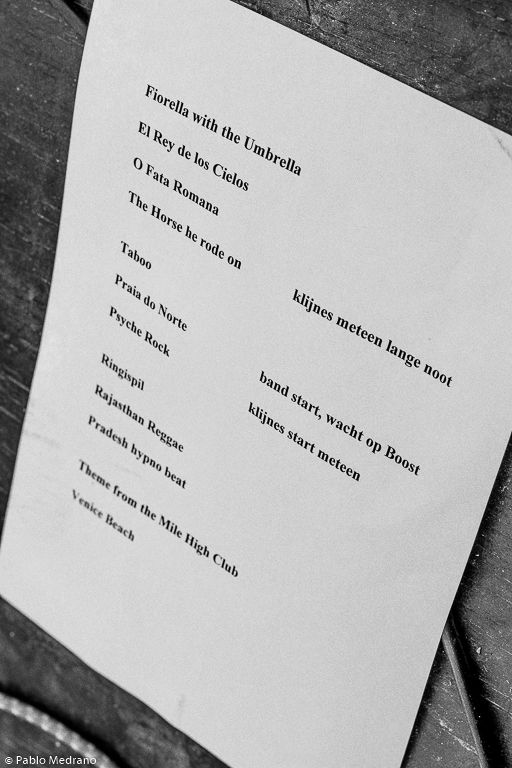 Fiorella with the Umbrella
El Rey de los Cielos
O Fata Romana
The Horse he rode on klijnes meteen lange noot
Taboo
Praia do Norte band start, wacht op Boost
Psyche Rock klijnes start meteen
Ringispil
Rajasthan Reggae
Pradesh hypno beat
Theme from the Mile High Club
Venice Beach
© Pablo Medrano